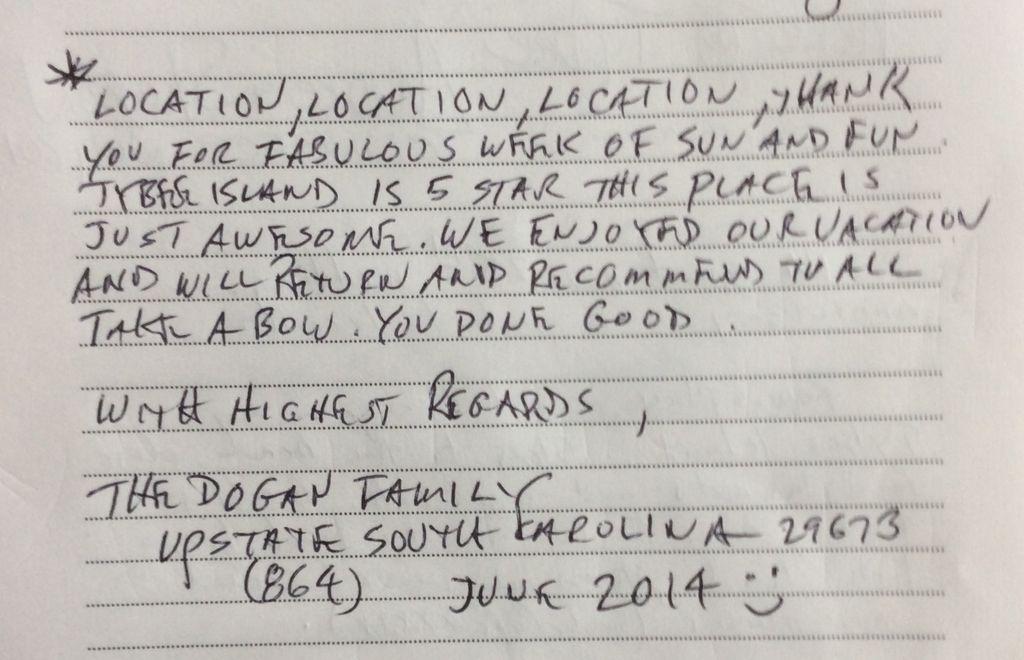 * LOCATION, LOCATION, LOCATION, THANK
YOU FOR FABULOUS WEEK OF SUN AND FUN.
TYBEE ISLAND IS 5 STAR THIS PLACE IS
JUST AWESOME. WE ENJOYED OUR VACATION
AND WILL RETURN AND RECOMMEND TO ALL
TAKE A BOW. YOU DONE GOOD.
WITH HIGHEST REGARDS,
THE DOGAN FAMILY
UPSTATE SOUTH CAROLINA 29673
(864) JUNE 2014 :)